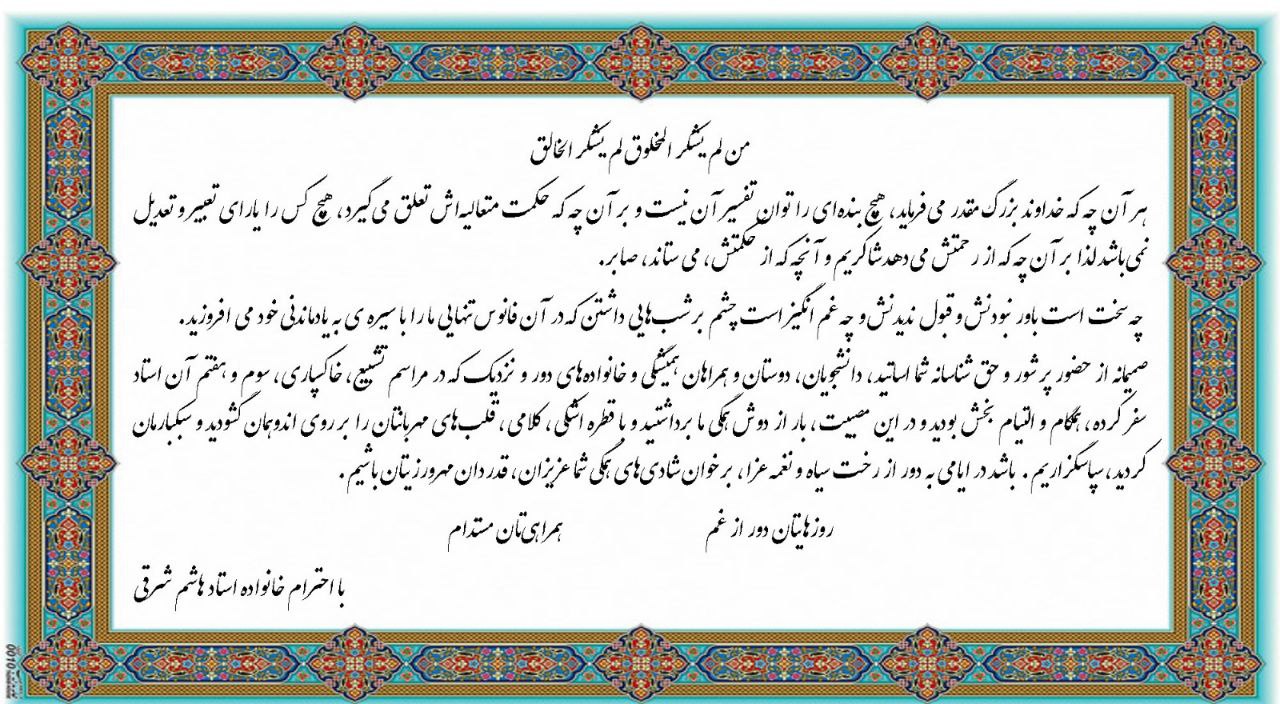 من لم یشکر المخلوق لم یشکر الخالق
هر آن چه که خداوند بزرگ مقدر می فرماید، هیچ بنده‌ای را توان تفسیر آن نیست و بر آن چه که حکمت متعالیه‌اش تعلق می‌گیرد، هیچ کس را یارای تعبیر و تعدیل
نمی‌باشد لذا بر آن چه که از رحمتش می‌دهد شاکریم و آنچه که از حکمتش، می ستاند، صابر.
چه سخت است باور نبودنش و قبول ندیدنش و چه غم انگیز است چشم بر شب‌هایی داشتن که در آن فانوس تنهایی ما را با سیره ی به یادماندنی خود می افروزید.
صمیمانه از حضور پرشور و حق شناسانه شما اساتید، دانشجویان، دوستان و همراهان همیشگی و خانواده‌های دور و نزدیک که در مراسم تشییع، خاکسپاری، سوم و هفتم آن استاد
سفر کرده، همگام و التیام بخش بودید و در این مصیبت، بار از دوش همگی ما برداشتید و با قطره اشکی، کلامی، قلب‌های مهربانتان را بر روی اندوهمان گشودید و سبکبارمان
کردید، سپاسگزاریم. باشد در ایامی به دور از رخت سیاه و نغمه عزا، بر خوان شادی‌های همگی شما عزیزان، قدردان مهرورزیتان باشیم.
روزهایتان دور از غم همراهی‌تان مستدام
با احترام خانواده استاد هاشم شرقی
0010